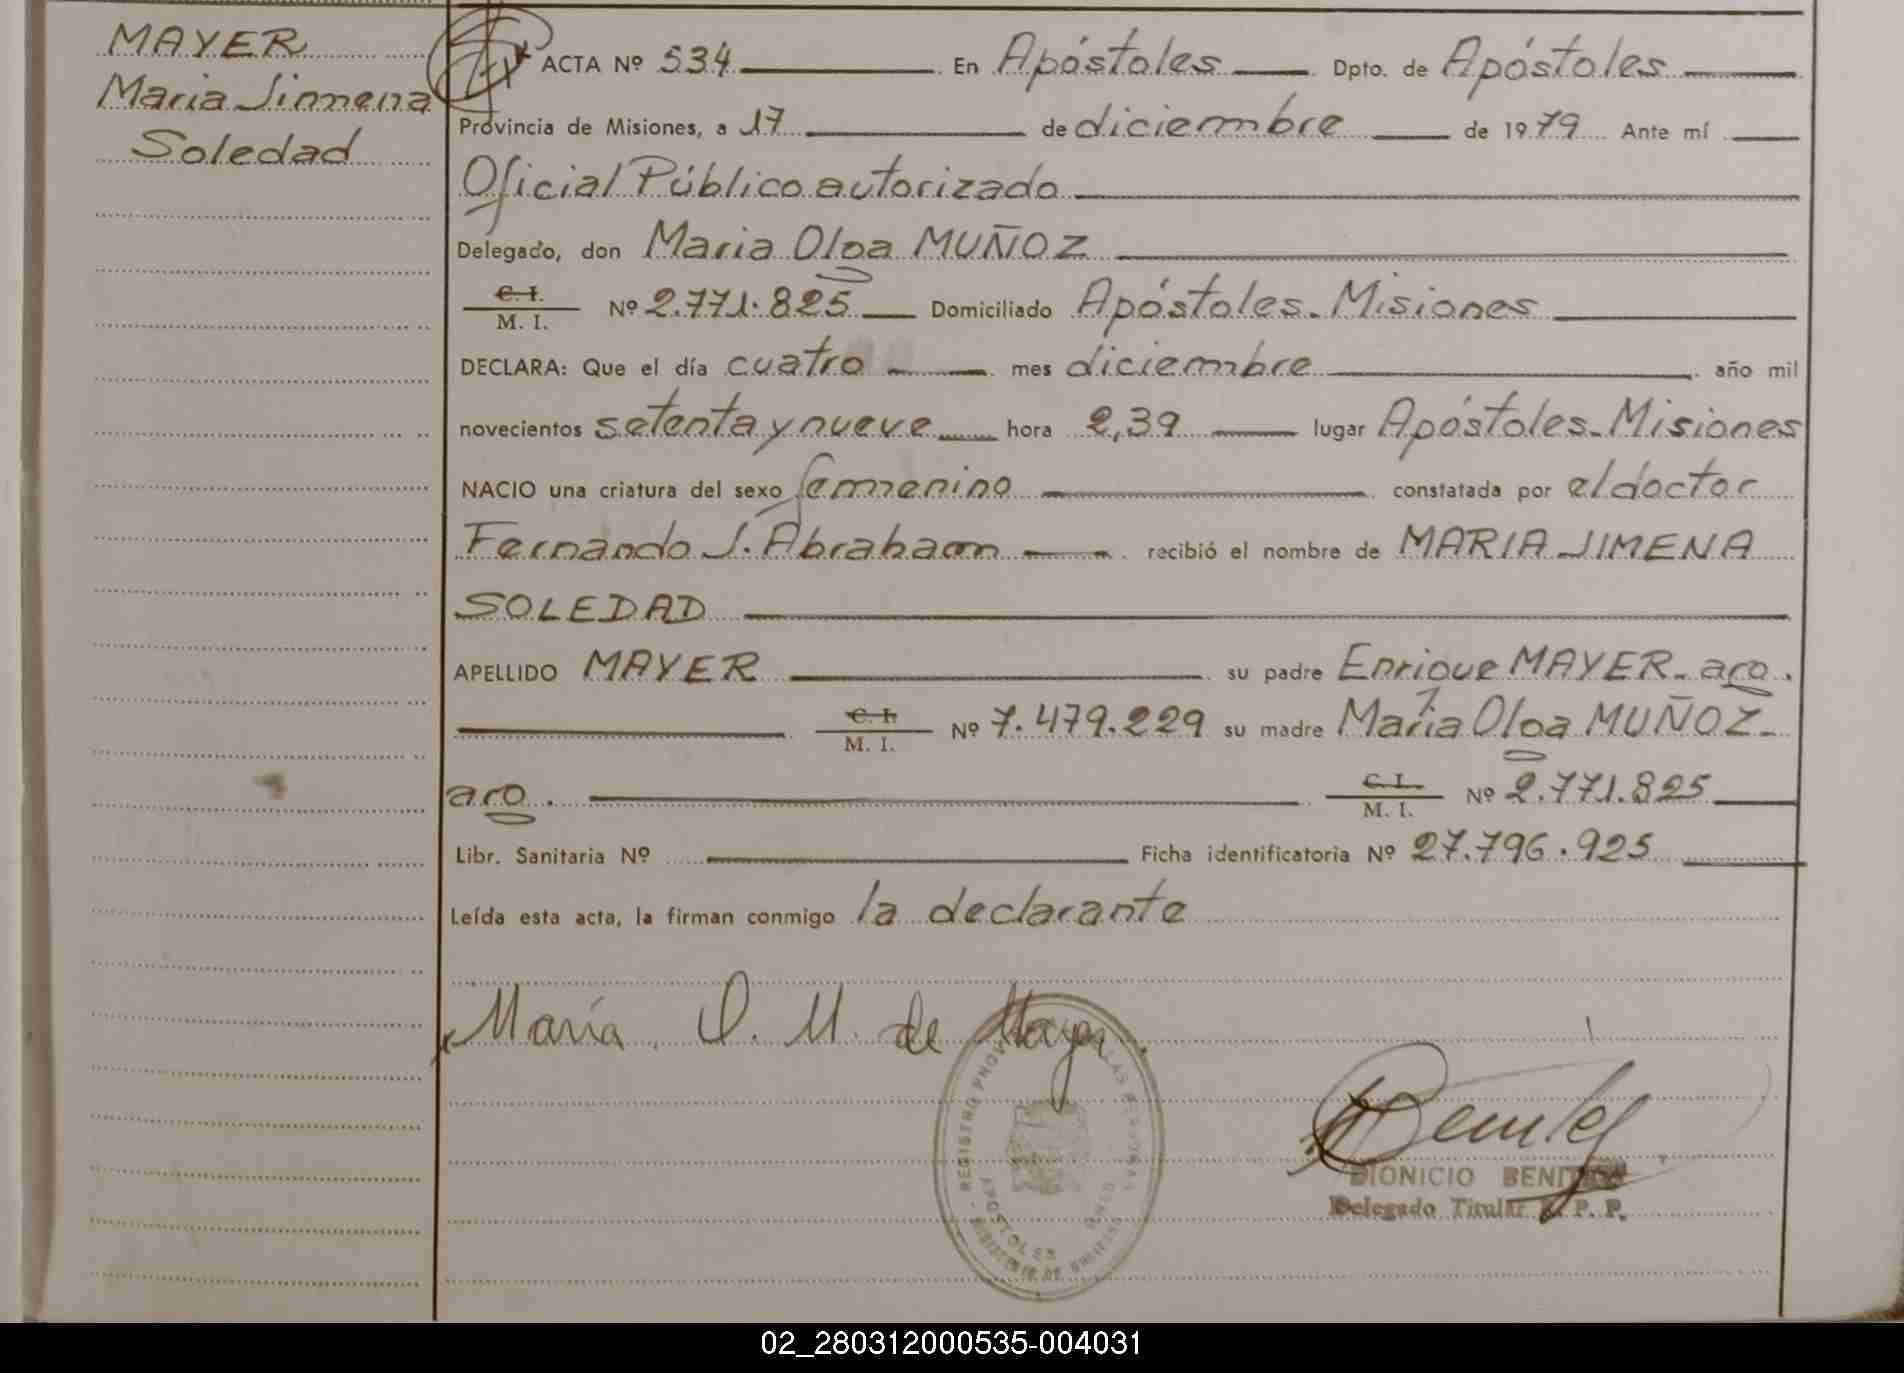 MAYER
Maria Jimena
Soledad
ACTA Nº 534 En Apóstoles Dpto. de Apóstoles
Provincia de Misiones, a 17 de diciembre de 1979 Ante mí
Oficial Público autorizado
Delegado, don Maria Olga MUÑOZ
C. I.
M. I. Nº 2.771.825 Domiciliado Apóstoles. Misiones
DECLARA: Que el día cuatro mes diciembre año mil
novecientos setenta y nueve hora 2,39 lugar Apóstoles. Misiones
NACIO una criatura del sexo femenino constatada por el doctor
Fernando J. Abraham recibió el nombre de MARIA JIMENA
SOLEDAD
APELLIDO MAYER su padre Enrique MAYER. arg.
C. I.
M. I. Nº 7.479.229 su madre Maria Olga MUÑOZ.
arg. C. I.
M. I. Nº 2.771.825
Libr. Sanitaria Nº Ficha identificatoria Nº 27.796.925
Leída esta acta, la firman conmigo la declarante
María. O. M. de Mayer.
REGISTRO PROV LAS PERSONAS
APOSTOLES
Benitez
DIONICIO BENITEZ
Delegado Titular R. P. P.
02_280312000535-004031